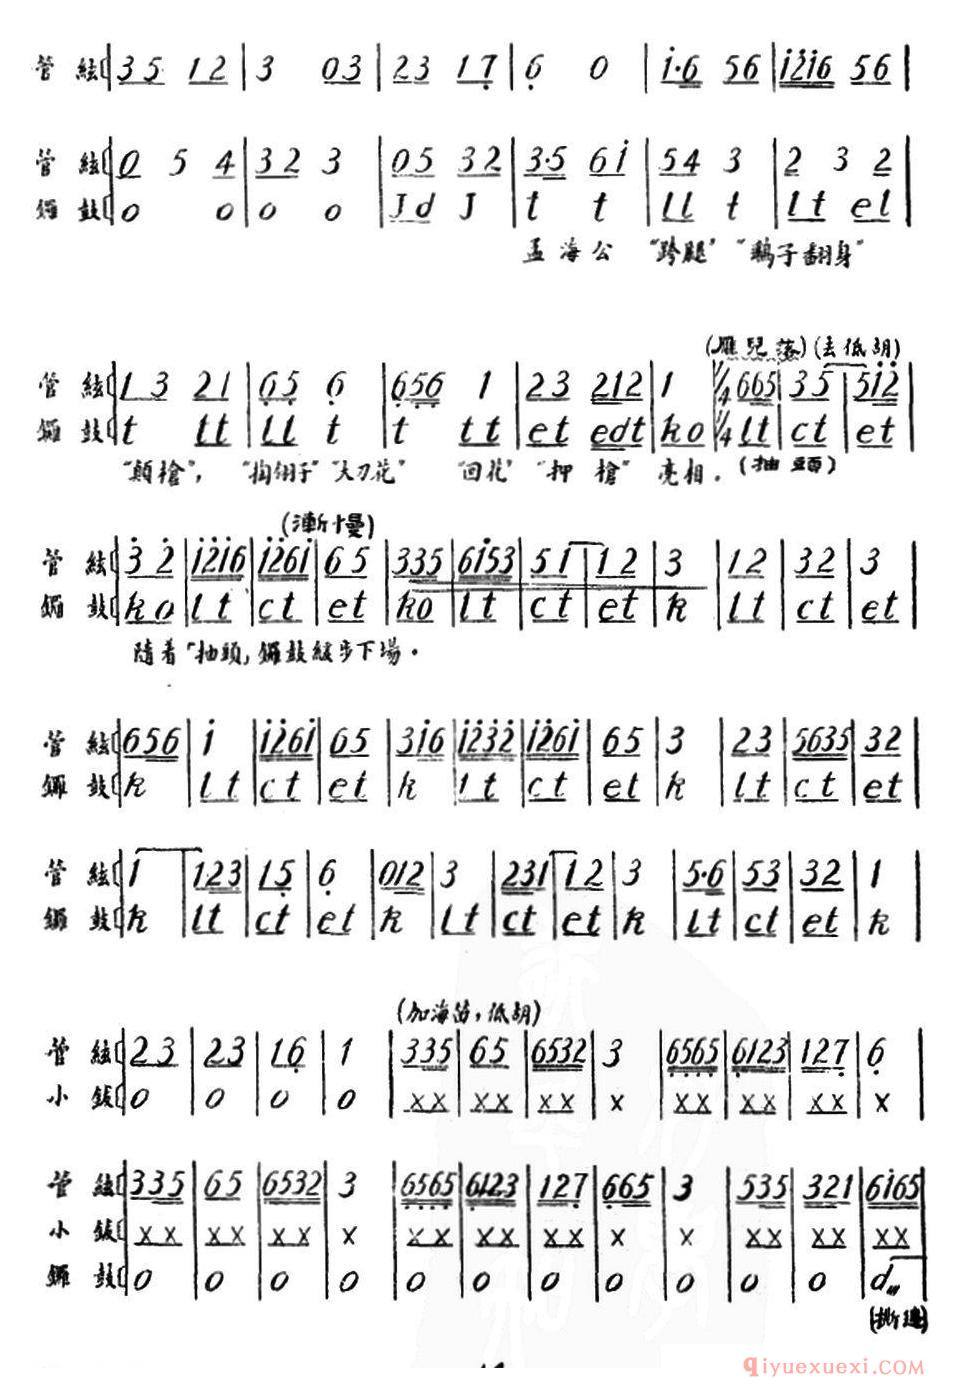 管絃 3 5 1 2 | 3 0 3 | 2 3 1 7 | 6 0 | i·6 5 6 | i2i6 5 6 |
管絃 0 5 4 | 3 2 3 | 0 5 3 2 | 3·5 6 i | 5 4 3 | 2 3 2 |
鑼鼓 0 0 | 0 0 | J d J | t t | l l t | l t e l |
孟海公 "跨腿" "鷂子翻身"
(雁兒落) (去低胡)
管絃 1 3 2 1 | 6 5 6 | 6 5 6 1 | 2 3 2 1 2 | 1 | 1/4 6 6 5 | 3 5 | 5 i 2 |
鑼鼓 t t t | l l t | t t t | e t e d t | k o | 1/4 l t | c t | e t |
"顛槍", "掏翎子" "大刀花" "回花" "押槍" 亮相. (抽頭)
(漸慢)
管絃 3 2 | i2i6 | i26i | 6 5 | 3 3 5 | 6i53 | 5 1 | 1 2 | 3 | 1 2 | 3 2 | 3 |
鑼鼓 k o | l t | c t | e t | k o | l t | c t | e t | k | l t | c t | e t |
隨着「抽頭」鑼鼓緩步下場.
管絃 6 5 6 | i | i26i | 6 5 | 3 i 6 | i232 | i26i | 6 5 | 3 | 2 3 | 5635 | 3 2 |
鑼鼓 k | l t | c t | e t | k | l t | c t | e t | k | l t | c t | e t |
管絃 1 | 1 2 3 | 1 5 | 6 | 0 1 2 | 3 | 2 3 1 | 1 2 | 3 | 5·6 | 5 3 | 3 2 | 1 |
鑼鼓 k | l t | c t | e t | k | l t | c t | e t | k | l t | c t | e t | k |
(加海笛,低胡)
管絃 2 3 | 2 3 | 1 6 | 1 | 3 3 5 | 6 5 | 6532 | 3 | 6565 | 6123 | 1 2 7 | 6 |
小鈸 0 | 0 | 0 | 0 | x x | x x | x x | x | x x | x x | x x | x |
管絃 3 3 5 | 6 5 | 6532 | 3 | 6565 | 6123 | 1 2 7 | 6 6 5 | 3 | 5 3 5 | 3 2 1 | 6i65 |
小鈸 x x | x x | x x | x | x x | x x | x x | x | x | x x | x x | x x |
鑼鼓 0 | 0 | 0 | 0 | 0 | 0 | 0 | 0 | 0 | 0 | 0 | d |
(撕邊)
qiyuexuexi.COM